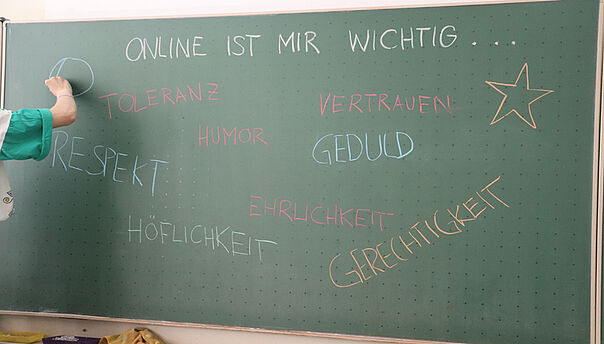 ONLINE IST MIR WICHTIG ...
TOLERANZ
VERTRAUEN
HUMOR
GEDULD
RESPEKT
EHRLICHKEIT
HÖFLICHKEIT
GERECHTIGKEIT